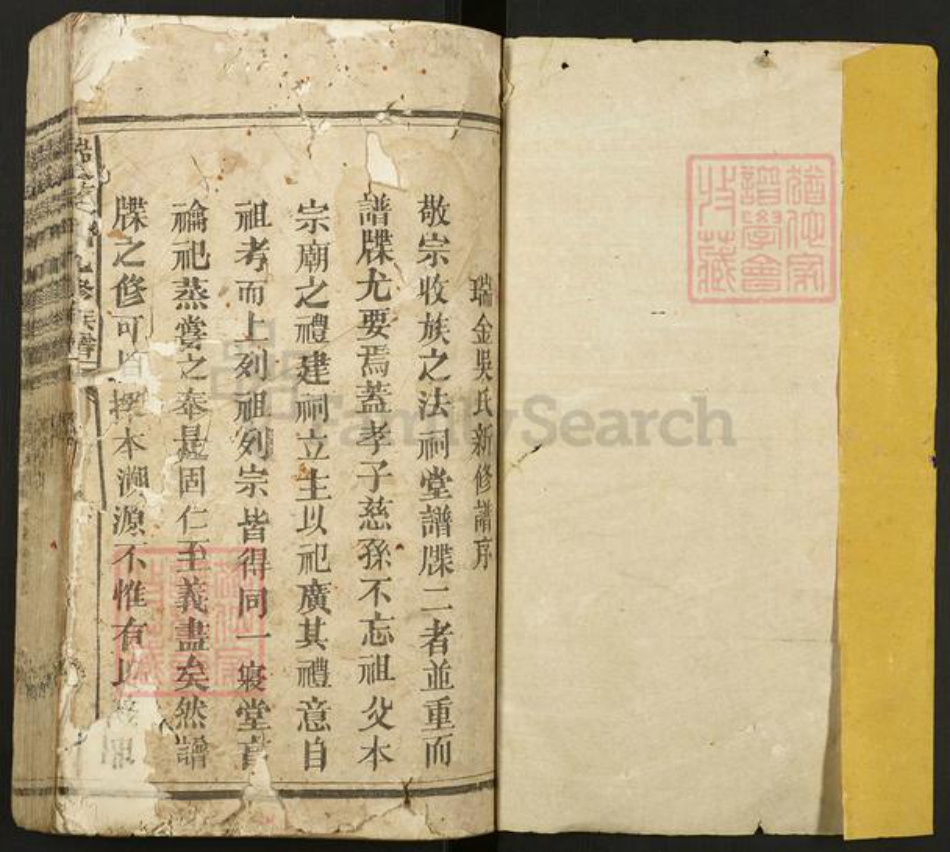 猶他家
譜學會
收藏
瑞金吳氏新修譜序
敬宗收族之法祠堂譜牒二者並重而
譜牒尤要焉蓋孝子慈孫不忘祖父本
宗廟之禮建祠立主以祀廣其禮意自
祖考而上列祖列宗皆得同一寢堂
禴祀蒸嘗之奉是固仁至義盡矣然譜
牒之修可 本溯源不惟有以
九修族譜
猶他家
譜學會
收藏
FamilySearch